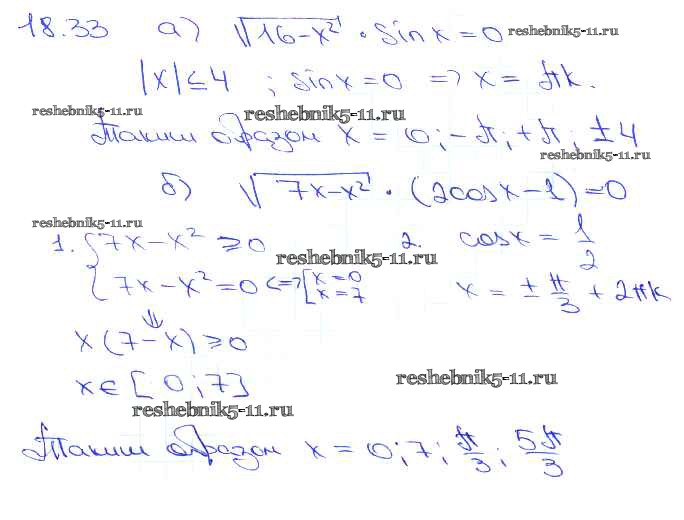 18.33 а) √(16-x²) · sin x = 0 reshebnik5-11.ru
|x| ≤ 4 ; sin x = 0 => x = πk.
reshebnik5-11.ru reshebnik5-11.ru
Таким образом x = 0; -π; +π; ±4
reshebnik5-11.ru
б) √(7x-x²) · (2cosx - 1) = 0
reshebnik5-11.ru
1. { 7x - x² ≥ 0 2. cosx = 1/2
reshebnik5-11.ru
{ 7x - x² = 0 <=> [ x = 0 x = 7 x = ± π/3 + 2πk
⇓
x(7-x) ≥ 0
x ∈ [0; 7] reshebnik5-11.ru
reshebnik5-11.ru
Таким образом x = 0; 7; π/3; 5π/3